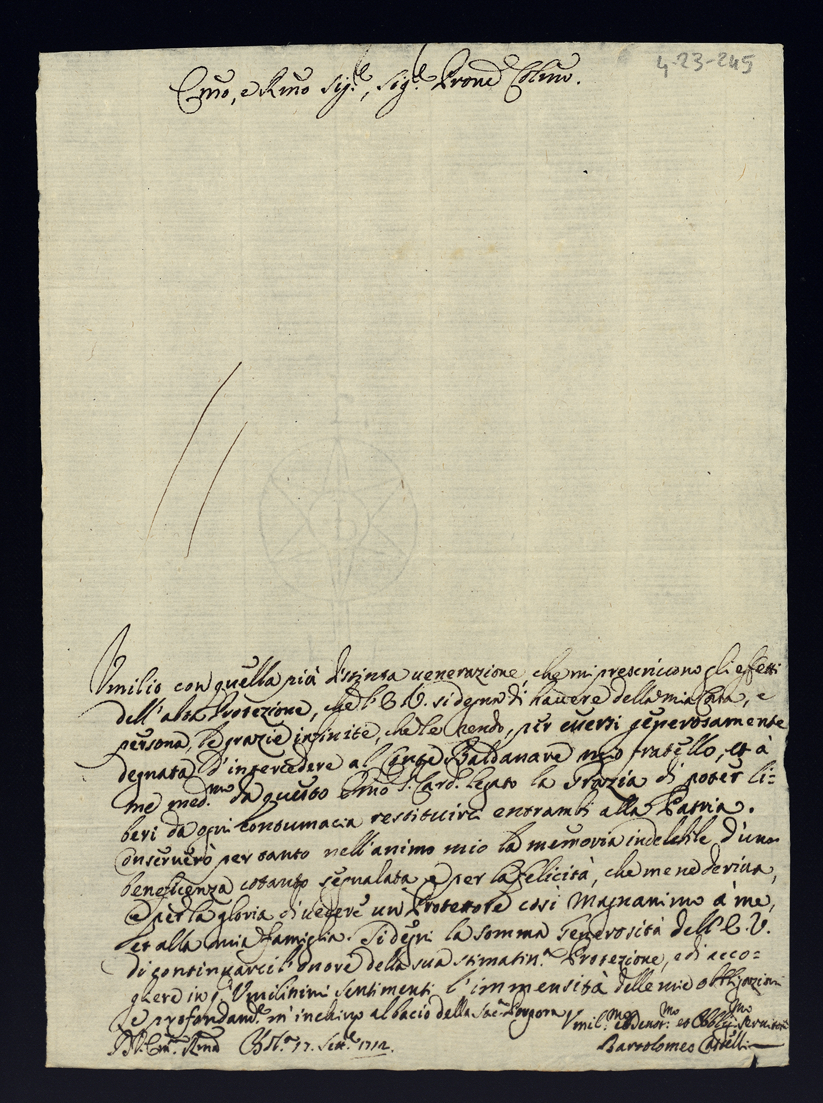 4-23-245
Em̃o, e Rm̃o Sig.re, Sig.re Prone Colmo.
Umilio con quella più distinta venerazione, che mi prescrivono gli effetti
dell'alta Protezione, che l'E. V. si degna di havere della mia Casa, e
persona, le grazie infinite, che le rendo, per essersi generosamente
degnata d'intercedere al Conte mio fratello, et à
me med.mo da questo Em̃o S. Card. Legato la Grazia di poter li=
beri da ogni contumacia restituirci entrambi alla Patria.
Conserverò per tanto nell'animo mio la memoria indelebile d'una
beneficenza cotanto segnalata e per la felicità, che me ne deriva,
e per la gloria di vedere un Protettore così Magnanimo à me,
et alla mia Famiglia. Si degni la somma Generosità dell'E. V.
di continuarci l'onore della sua stimatin.a Protezione, e di acco=
gliere in Umilissimi sentimenti l'immensità delle mie obbligazioni
e profondam.e m'inchino al bacio della Sac.a Porpora
Umil.mo Devot.mo et Obblig.mo Servitore
Bartolomeo
17. Sett.e 1712.